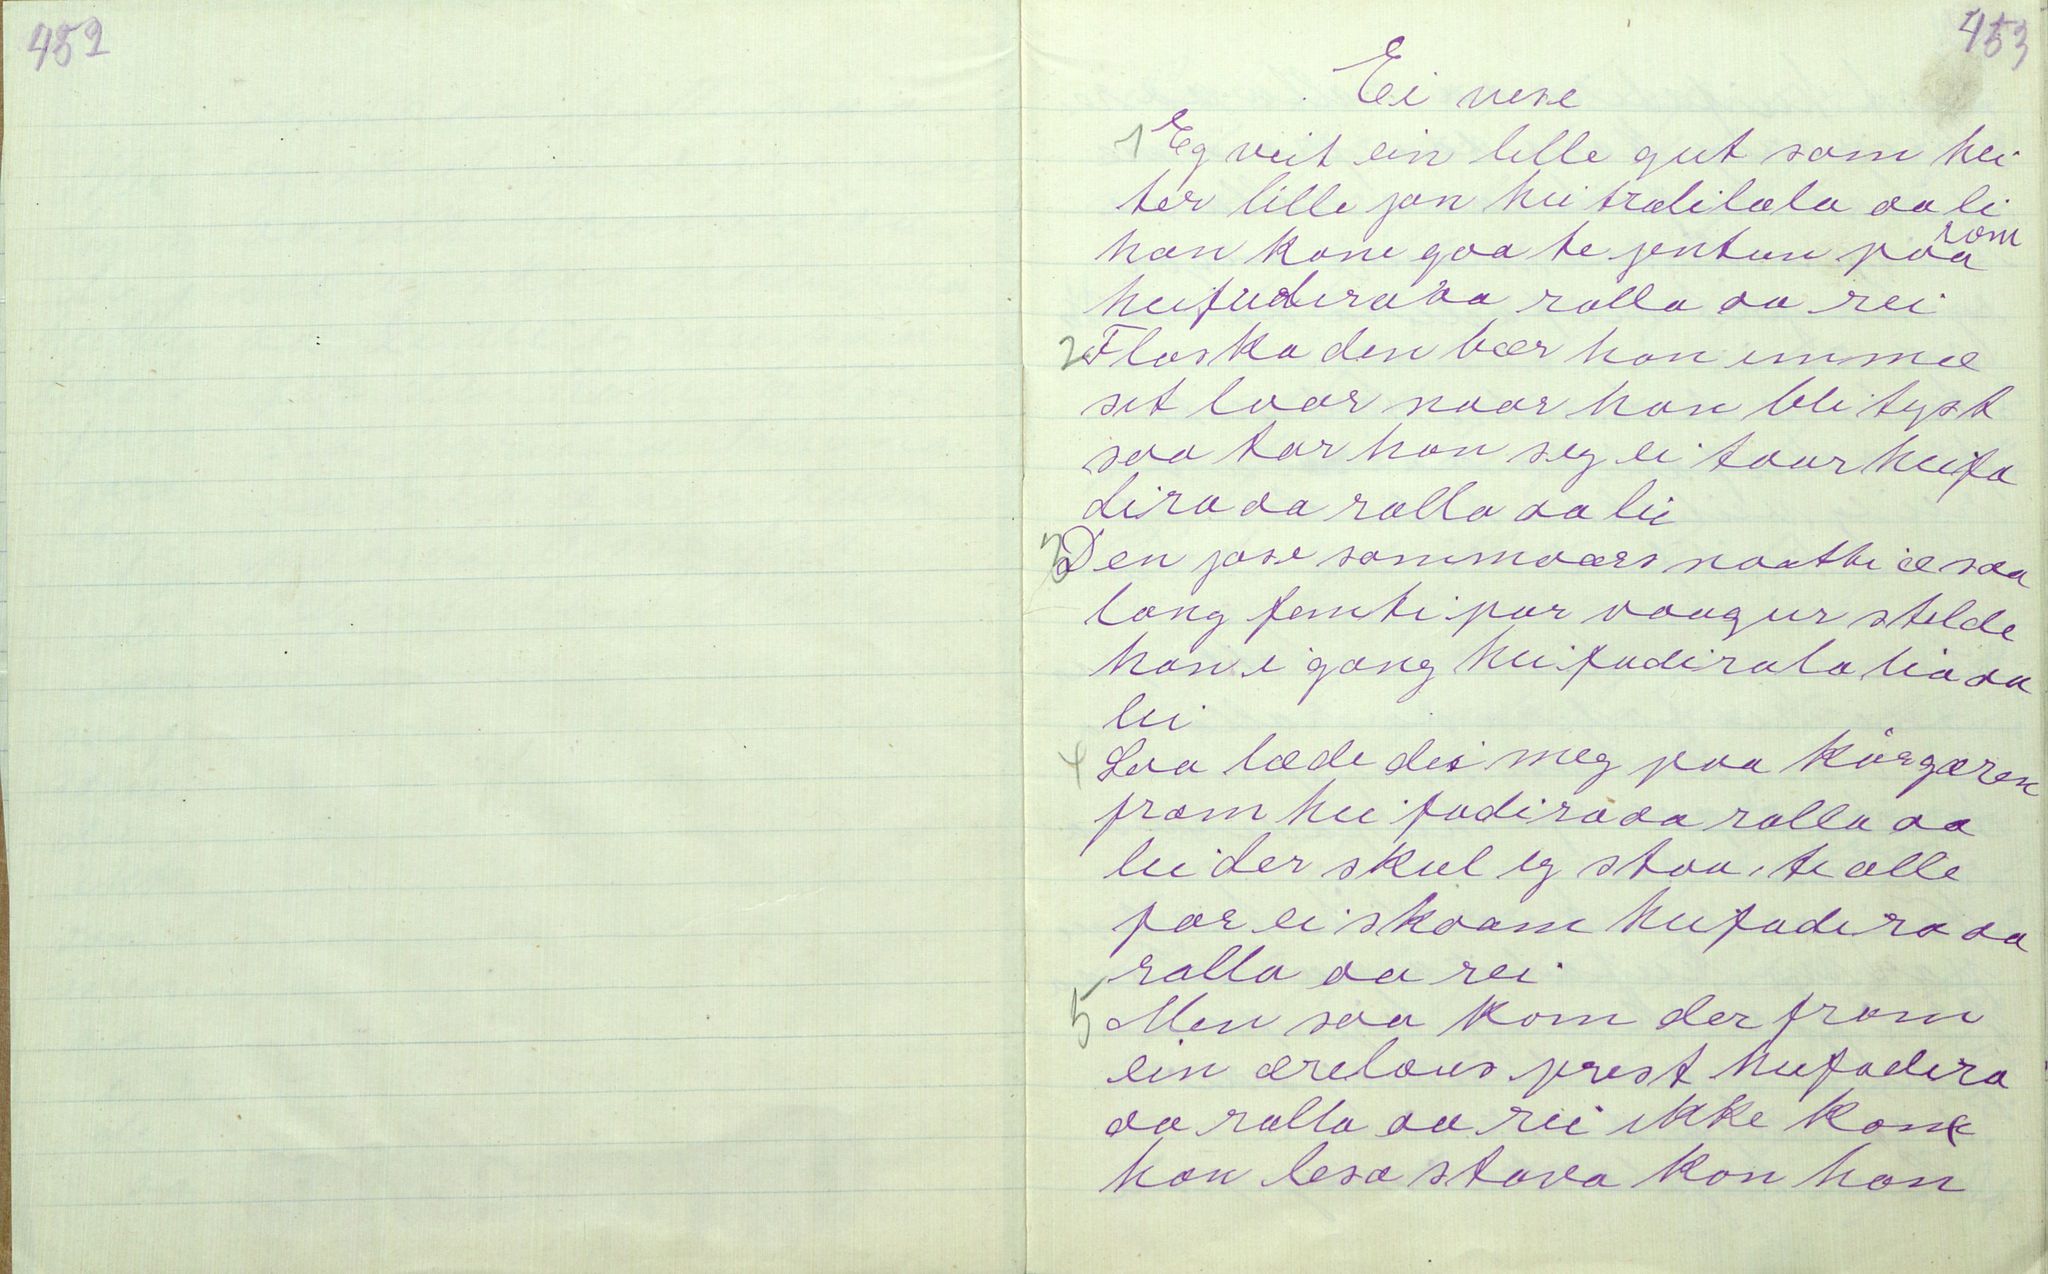 452
453
Ei vese
1 Eg veit ein lille gut som hei
ter lille jon hei tralilala aa li
han kone gaa te jentun paa rom
heifudiraaa ralla aa rei
2 Flaska den bær han imme
set laar naar han bli tyst
saa tar han seg ei taar heifa
diraaa ralla aa lei
3 Den jase sommaars naatti æ saa
lang femti par vaagur stelde
han i gang hei fadirala lia aa
lei
4 Saa læde dei meg paa kirgæren
fram hei fadiraaa ralla aa
lei der skul eg staa te alle
for ei skaam heifadiraaa
ralla aa rei
5 Men saa kom der fram
ein ærelaus prest heifadira
aa ralla aa rei ikke kone
han lesa stava kon han